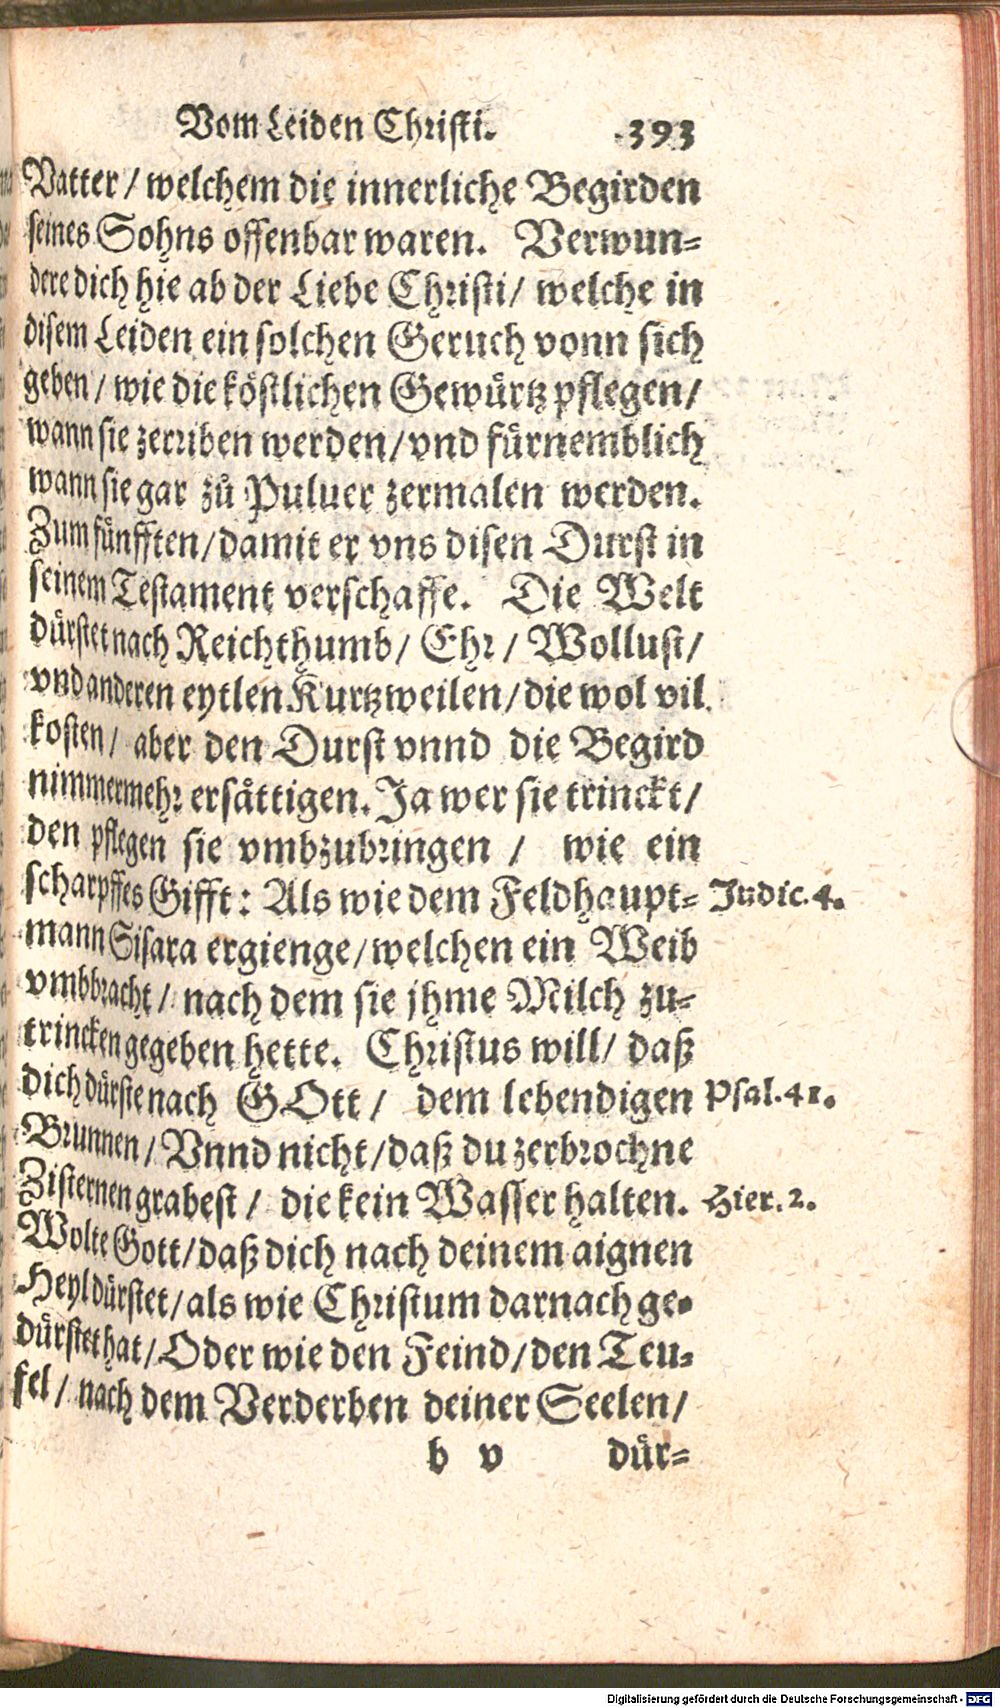 Vom Leiden Christi. 393
Vatter / welchem die innerliche Begirden
seines Sohns offenbar waren. Verwun-
dere dich hie ab der Liebe Christi / welche in
disem Leiden ein solchen Geruch vonn sich
geben / wie die köstlichen Gewürtz pflegen /
wann sie zerriben werden / vnd fürnemblich
wann sie gar zů Puluer zermalen werden.
Zum fünfften / damit er vns disen Durst in
seinem Testament verschaffe. Die Welt
dürstet nach Reichthumb / Ehr / Wollust /
vnd anderen eytlen Kurtzweilen / die wol vil
kosten / aber den Durst vnnd die Begird
nimmermehr ersättigen. Ja wer sie trinckt /
den pflegen sie vmbzubringen / wie ein
scharpffes Gifft: Als wie dem Feldhaupt- Judic. 4.
mann Sisara ergienge / welchen ein Weib
vmbbracht / nach dem sie jhme Milch zu-
trincken gegeben hette. Christus will / daß
dich dürste nach GOtt / dem lebendigen Psal. 41.
Brunnen / Vnnd nicht / daß du zerbrochne
Zisternen grabest / die kein Wasser halten. Hier. 2.
Wolte Gott / daß dich nach deinem aignen
Heyl dürstet / als wie Christum darnach ge-
dürstet hat / Oder wie den Feind / den Teu-
fel / nach dem Verderben deiner Seelen /
b v dür-
Digitalisierung gefördert durch die Deutsche Forschungsgemeinschaft - DFG